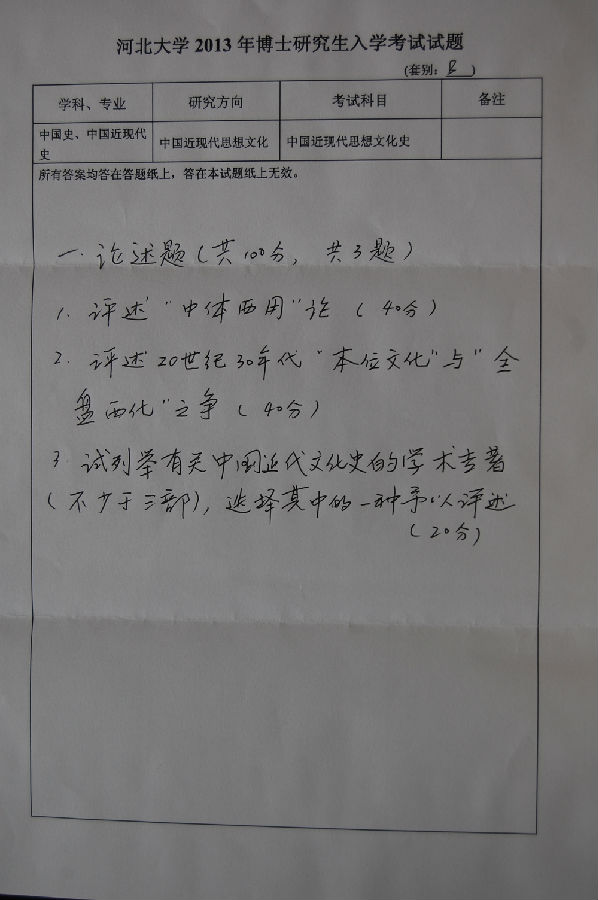 河北大学 2013 年博士研究生入学考试试题
(套别: B )
学科、专业 研究方向 考试科目 备注
中国史、中国近现代史 中国近现代思想文化 中国近现代思想文化史
所有答案均答在答题纸上，答在本试题纸上无效。
一. 论述题（共100分，共3题）
1. 评述“中体西用”论（40分）
2. 评述20世纪30年代“本位文化”与“全
盘西化”之争（40分）
3. 试列举有关中国近代文化史的学术专著
（不少于三部），选择其中的一种予以评述
（20分）